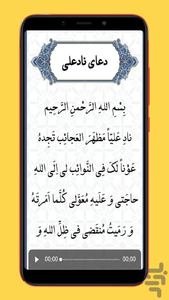 دعای نادعلی
بِسْمِ اللهِ الرَّحْمنِ الرَّحِيمِ
نادِ عَلِيّاً مَظْهَرَ الْعَجائِبِ تَجِدهُ
عَوْناً لَکَ فِی النَّوائِبِ لی اِلَی اللهِ
حاجَتی وَ عَلَيهِ مُعَوَّلی کُلَّما اَمَرتَهُ
وَ رَمَيتُ مُنقَضی فی ظِلِّ اللهِ وَ
00:00 00:00